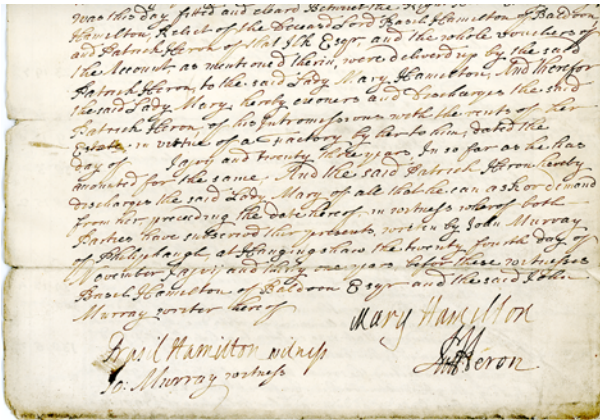 was this day fitted and cleard Betwixt the
Hamilton, Relict of the Deceast Lord Basil Hamilton of Baldoon,
and Patrick Heron of that Ilk Esqr, and the whole vouchers of
the Account, as mentioned therin, were delivered up by the said
Patrick Heron, to the said Lady Mary Hamilton, And therefor
the said Lady Mary hereby exoners and Discharges the said
Patrick Heron, of his Intromissions with the rents of her
Estate, in virtue of a Factory by her to him, dated the
day of Jajvij and twenty three years, In so far as he has
accounted for the same. And the said Patrick Heron hereby
discharges the said Lady Mary of all that he can ask or demand
from her preceeding the date hereof, in witness wherof both
Parties have subscrivd thir presents, written by John Murray
of Philiphaugh, at Hangingshaw the twenty fourth day of
November Jajvij and thirty one years before these witnesses
Basil Hamilton of Baldoon Esqr and the said John
Murray writer hereof
Mary Hamilton
Basil Hamilton witness
Heron
Jo: Murray witness